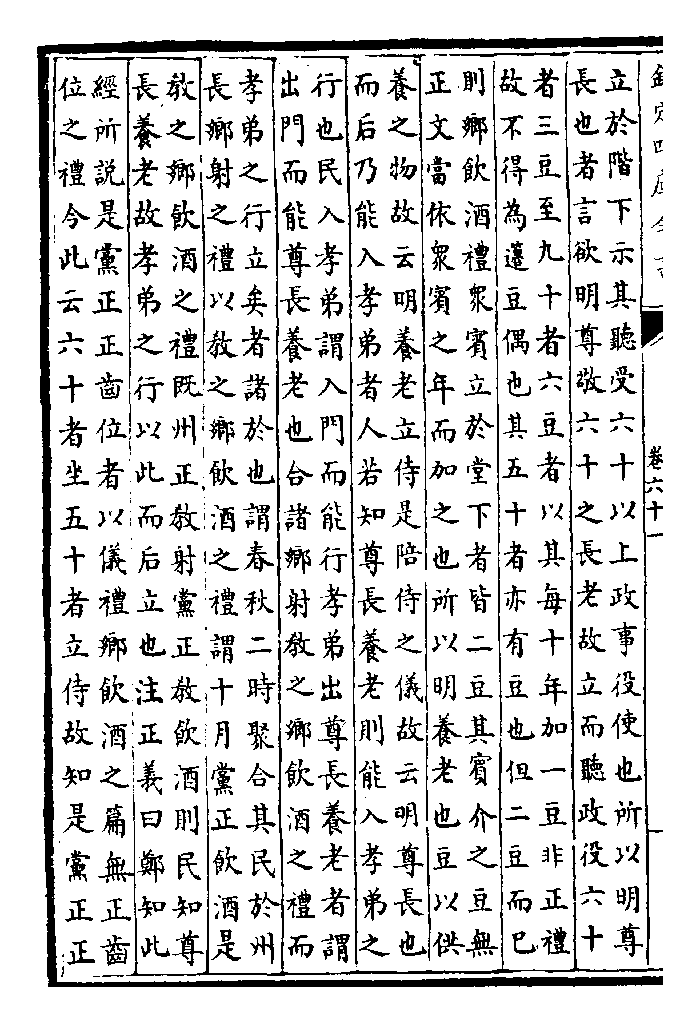 欽定四庫全書
卷六十一
立於階下示其聽受六十以上政事役使也所以明尊
長也者言欲明尊敬六十之長老故立而聽政役六十
者三豆至九十者六豆者以其每十年加一豆非正禮
故不得為籩豆偶也其五十者亦有豆也但二豆而已
則鄉飲酒禮眾賓立於堂下者皆二豆其賓介之豆無
正文當依眾賓之年而加之也所以明養老也豆以供
養之物故云明養老立侍是陪侍之儀故云明尊長也
而后乃能入孝弟者人若知尊長養老則能入孝弟之
行也民入孝弟謂入門而能行孝弟出尊長養老者謂
出門而能尊長養老也合諸鄉射教之鄉飲酒之禮而
孝弟之行立矣者諸於也謂春秋二時聚合其民於州
長鄉射之禮以教之鄉飲酒之禮謂十月黨正飲酒是
教之鄉飲酒之禮既州正教射黨正教飲酒則民知尊
長養老故孝弟之行以此而后立也注正義曰鄭知此
經所說是黨正正齒位者以儀禮鄉飲酒之篇無正齒
位之禮今此云六十者坐五十者立侍故知是黨正正